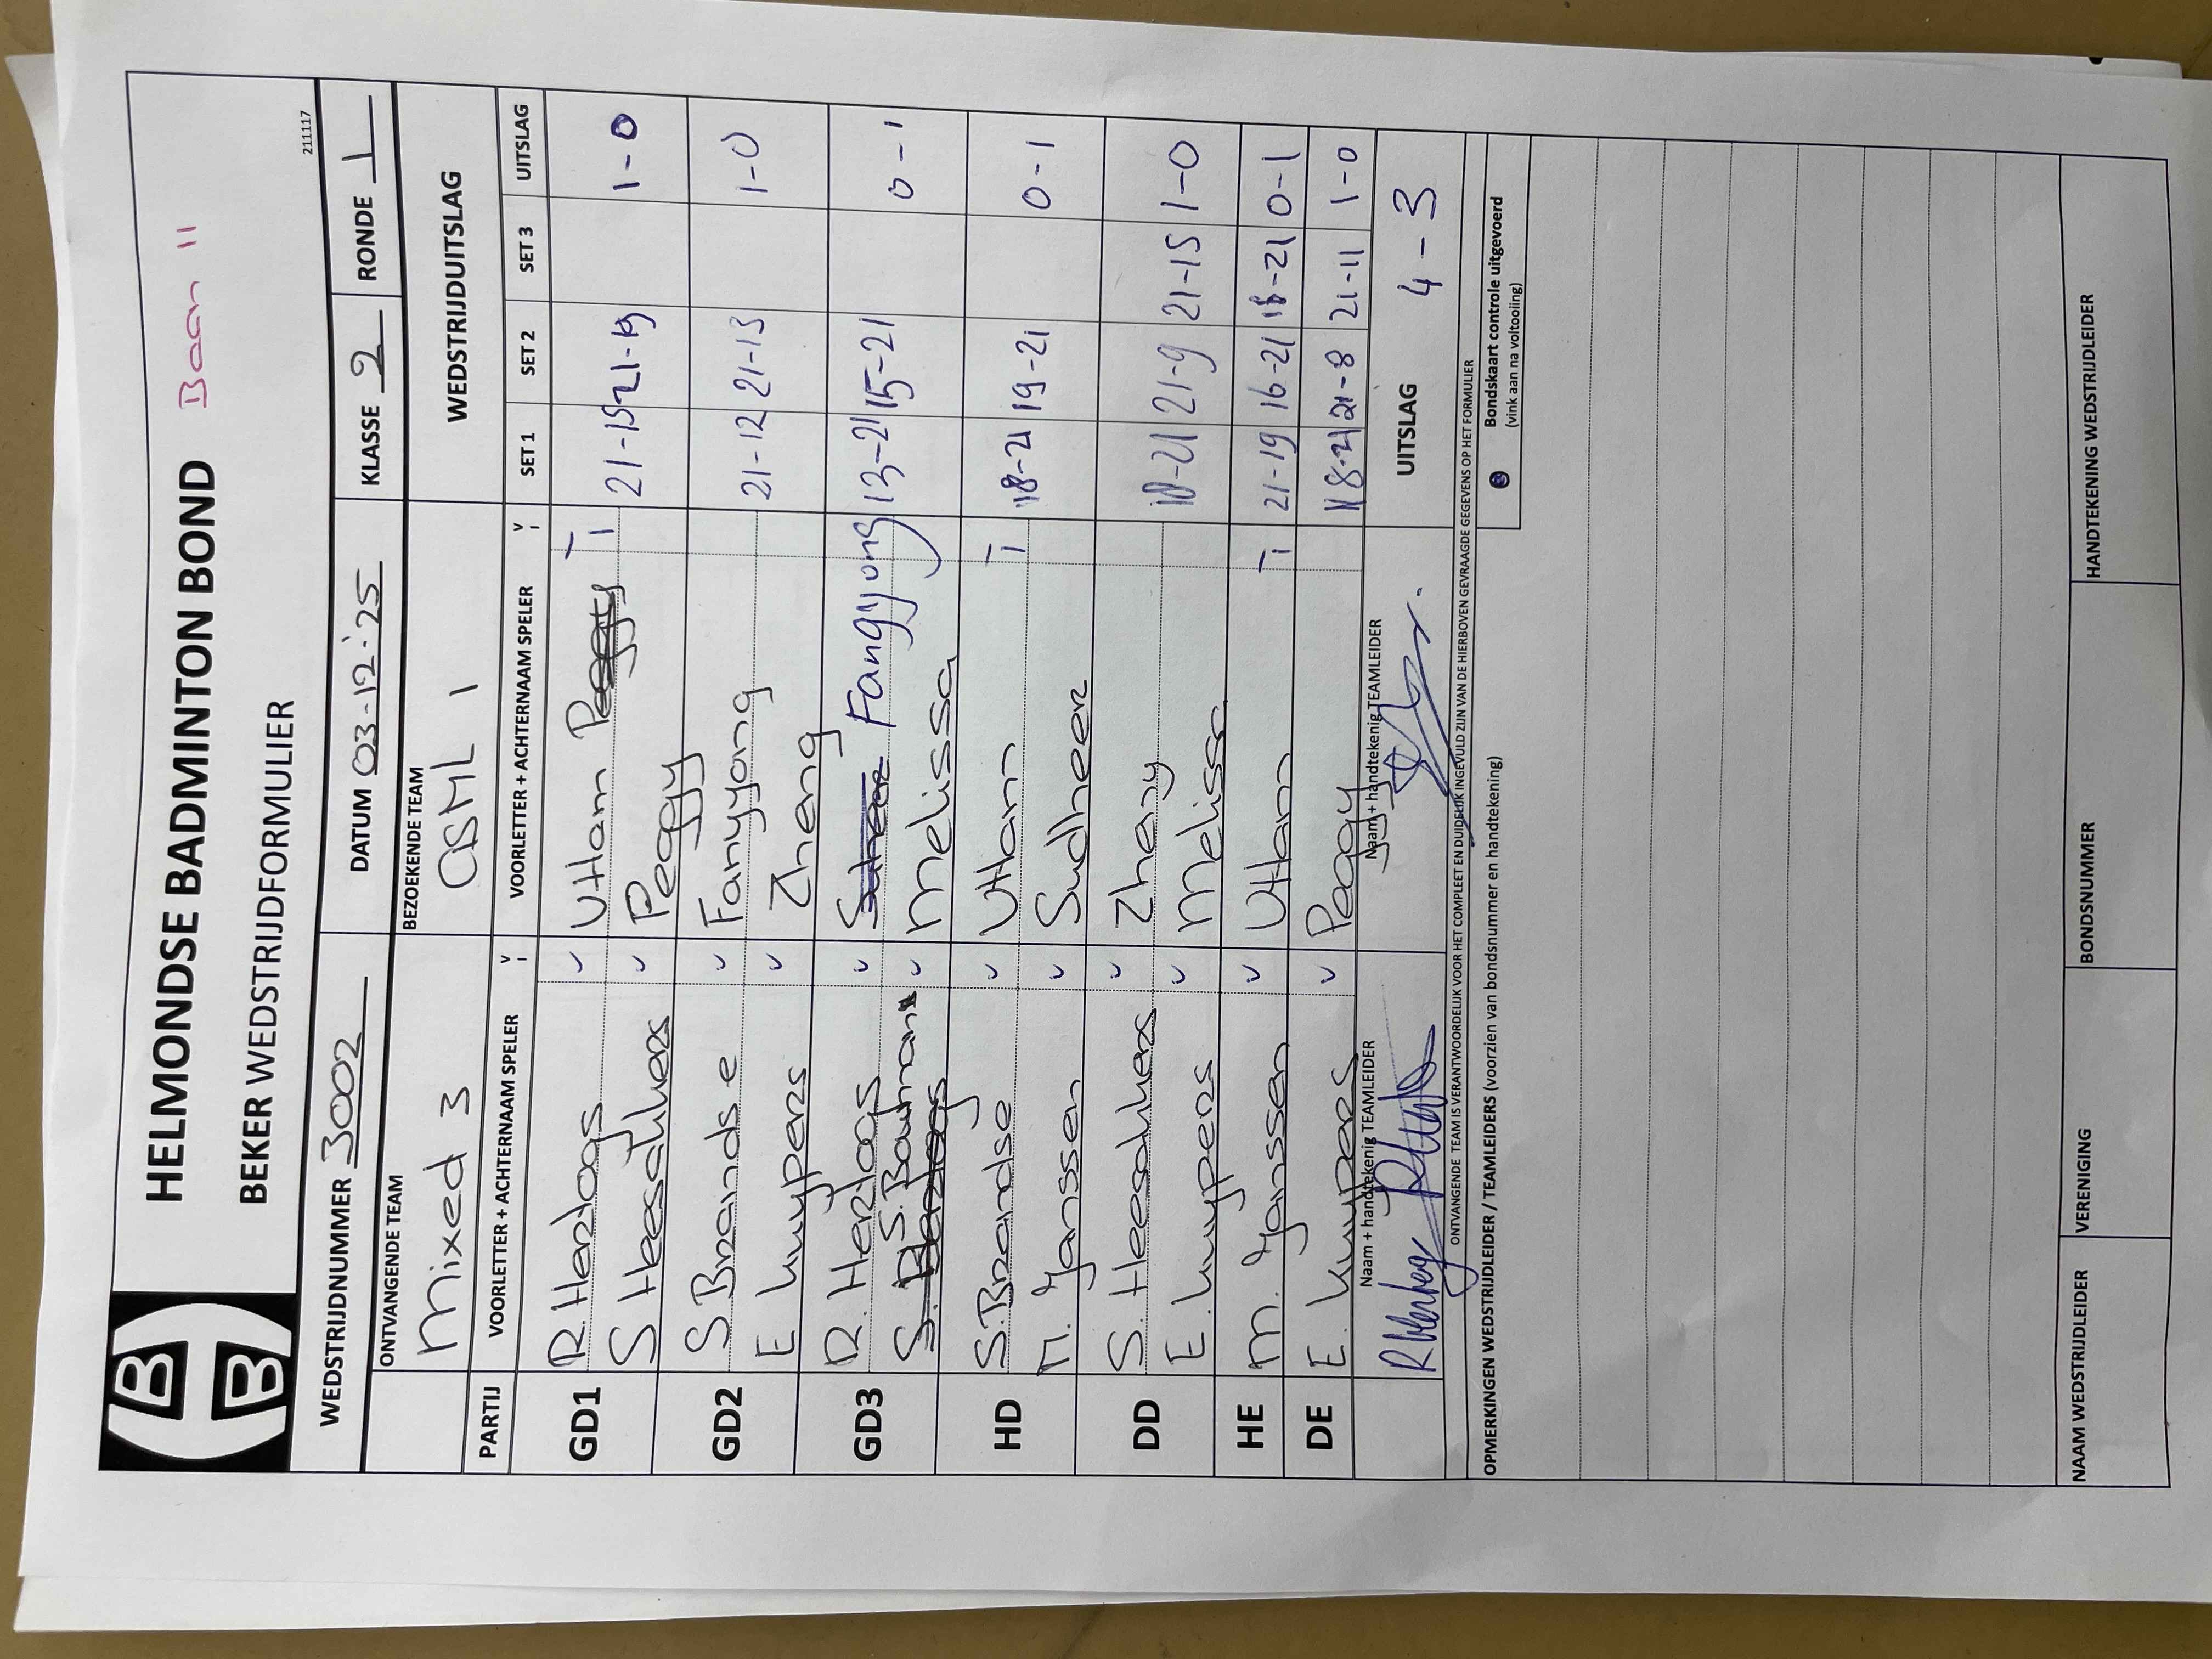 HELMONDSE BADMINTON BOND Baan 11
BEKER WEDSTRIJDFORMULIER
211117
WEDSTRIJDNUMMER 3002 DATUM 03-12-'25 KLASSE 2 RONDE 1
ONTVANGENDE TEAM BEZOEKENDE TEAM WEDSTRIJDUITSLAG
Mixed 3 ASML 1
PARTIJ VOORLETTER + ACHTERNAAM SPELER V I VOORLETTER + ACHTERNAAM SPELER V I SET 1 SET 2 SET 3 UITSLAG
GD1 R. Hertogs v Uttam I
S Heesakkers v Peggy I 21-15 21-19 1-0
GD2 S. Brandse v Fangyong
E Kuypers v Zhang 21-12 21-13 1-0
GD3 R. Hertogs v Fangyong
S. Bouman v Melissa 13-21 15-21 0-1
HD S. Brandse v Uttam I
M. Janssen v Sudheer 18-21 19-21 0-1
DD S. Heesakkers v Zhang
E. Kuypers v Melissa 18-21 21-9 21-15 1-0
HE M. Janssen v Uttam I 21-19 16-21 18-21 0-1
DE E. Kuypers v Peggy 18-21 21-8 21-11 1-0
Naam + handtekenig TEAMLEIDER Naam + handtekenig TEAMLEIDER UITSLAG 4-3
ONTVANGENDE TEAM IS VERANTWOORDELIJK VOOR HET COMPLEET EN DUIDELIJK INGEVULD ZIJN VAN DE HIERBOVEN GEVRAAGDE GEGEVENS OP HET FORMULIER
OPMERKINGEN WEDSTRIJDLEIDER / TEAMLEIDERS (voorzien van bondsnummer en handtekening) Bondskaart controle uitgevoerd
(vink aan na voltooiing)
NAAM WEDSTRIJDLEIDER VERENIGING BONDSNUMMER HANDTEKENING WEDSTRIJDLEIDER